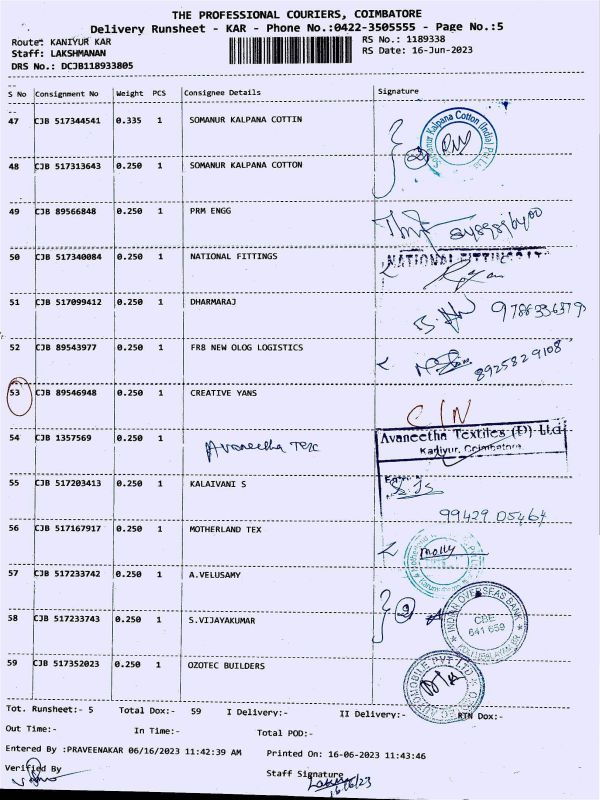 THE PROFESSIONAL COURIERS, COIMBATORE
Delivery Runsheet - KAR - Phone No.:0422-3505555 - Page No.:5
Route: KANIYUR KAR
RS No.: 1189338
Staff: LAKSHMANAN
RS Date: 16-Jun-2023
DRS No.: DCJB118933805
S No Consignment No Weight PCS Consignee Details Signature
47 CJB 517344541 0.335 1 SOMANUR KALPANA COTTIN
Somanur Kalpana Cotton (India) Pvt Ltd
48 CJB 517313643 0.250 1 SOMANUR KALPANA COTTON
49 CJB 89566848 0.250 1 PRM ENGG
50 CJB 517340084 0.250 1 NATIONAL FITTINGS
NATIONAL FITTINGS LT
51 CJB 517099412 0.250 1 DHARMARAJ
9786336379
52 CJB 89543977 0.250 1 FR8 NEW OLOG LOGISTICS
8925829108
53 CJB 89546948 0.250 1 CREATIVE YANS
C/N
54 CJB 1357569 0.250 1 Avaneetha Tex
Avaneetha Textiles (P) Ltd
Kaniyur, Coimbatore
55 CJB 517203413 0.250 1 KALAIVANI S
99429 05464
56 CJB 517167917 0.250 1 MOTHERLAND TEX
molly
57 CJB 517233742 0.250 1 A.VELUSAMY
58 CJB 517233743 0.250 1 S.VIJAYAKUMAR
INDIAN OVERSEAS BANK
CBE
641 659
59 CJB 517352023 0.250 1 OZOTEC BUILDERS
AUTOMOBILE PVT LTD
Tot. Runsheet:- 5 Total Dox:- 59 I Delivery:- II Delivery:- RTN Dox:-
Out Time:- In Time:- Total POD:-
Entered By :PRAVEENAKAR 06/16/2023 11:42:39 AM Printed On: 16-06-2023 11:43:46
Verified By
Staff Signature
16/6/23